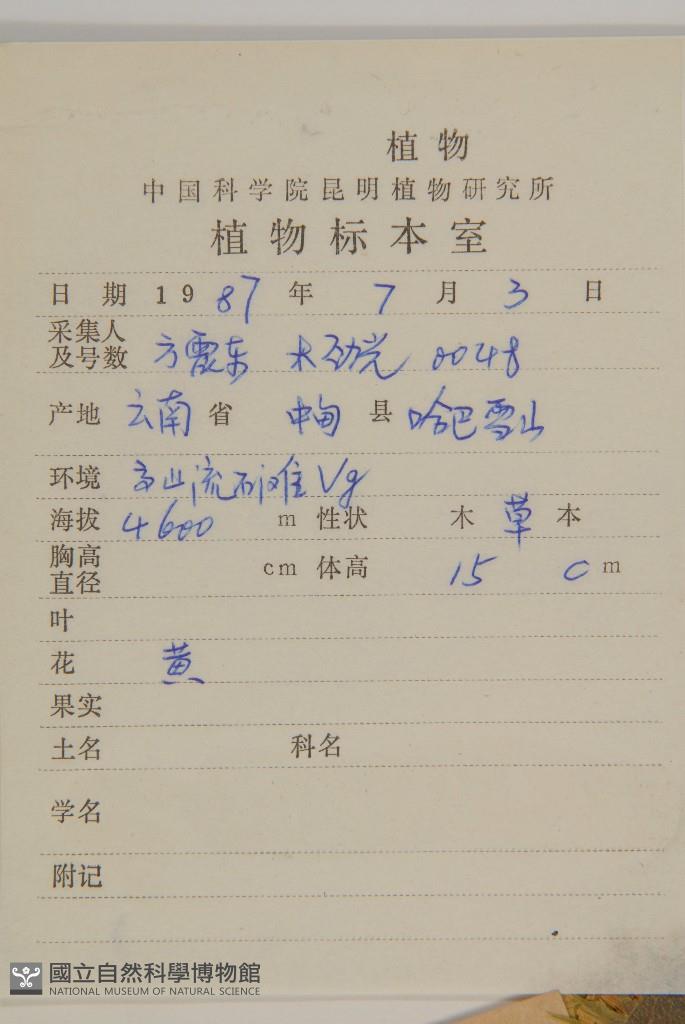 植物
中国科学院昆明植物研究所
植物标本室
日期 1987年 7月 3日
采集人
及号数 方震东 木劲光 0048
产地 云南省 中甸县 哈巴雪山
环境 高山流石滩 Vg
海拔 4600 m 性状 木草本
胸高
直径 cm 体高 15 cm
叶
花 黄
果实
土名 科名
学名
附记
國立自然科學博物館
NATIONAL MUSEUM OF NATURAL SCIENCE